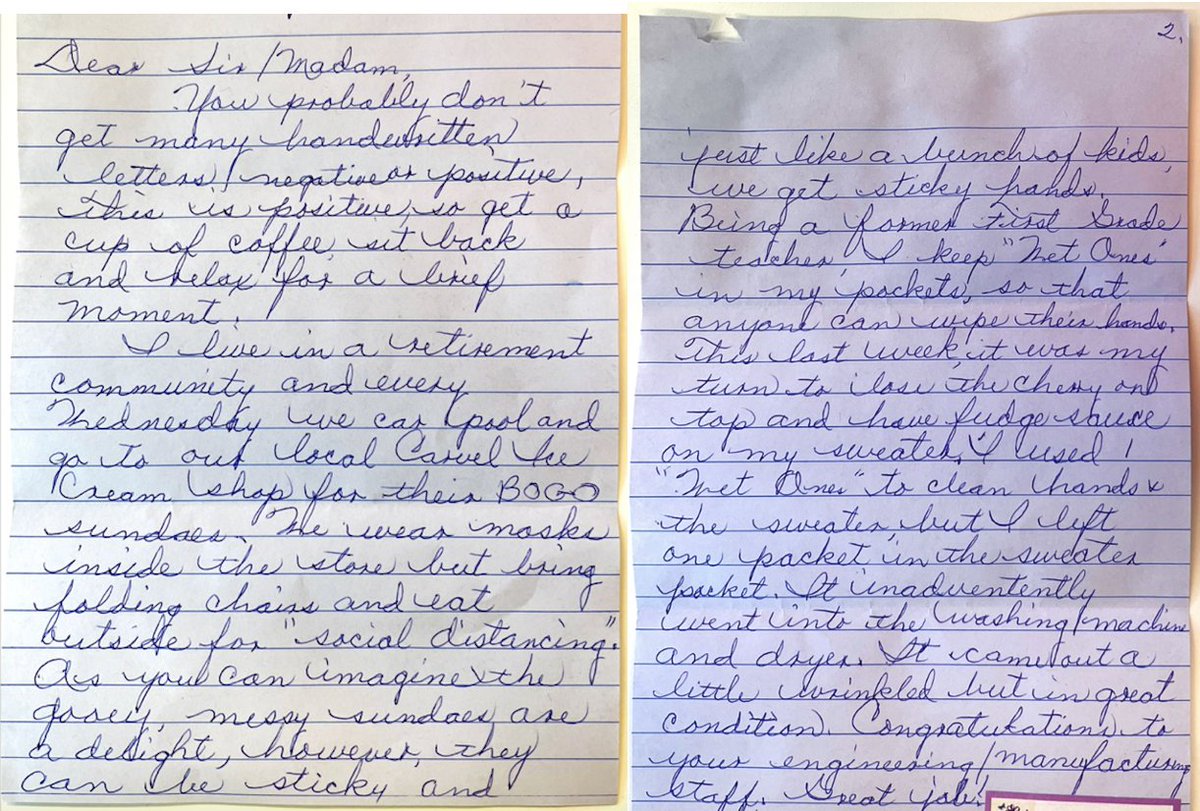 Dear Sir/Madam,
You probably don't
get many handwritten
letters/negative or positive,
this is positive, so get a
cup of coffee, sit back
and relax for a brief
moment.
I live in a retirement
community and every
Wednesday we car pool and
go to our local Carvel Ice
Cream shop for their BOGO
sundaes. We wear masks
inside the store but bring
folding chairs and eat
outside for "social distancing".
As you can imagine the
gooey, messy sundaes are
a delight, however, they
can be sticky and
2.
just like a bunch of kids,
we get sticky hands.
Being a former First Grade
teacher, I keep "Wet Ones"
in my pockets, so that
anyone can wipe their hands.
This last week, it was my
turn to lose the cherry on
top and have fudge sauce
on my sweater. I used 1
"Wet Ones" to clean hands &
the sweater, but I left
one packet in the sweater
pocket. It inadventently
went into the washing/machine
and dryer. It came out a
little wrinkled but in great
condition. Congratukations to
your engineering/manufacturing
staff. Great job!